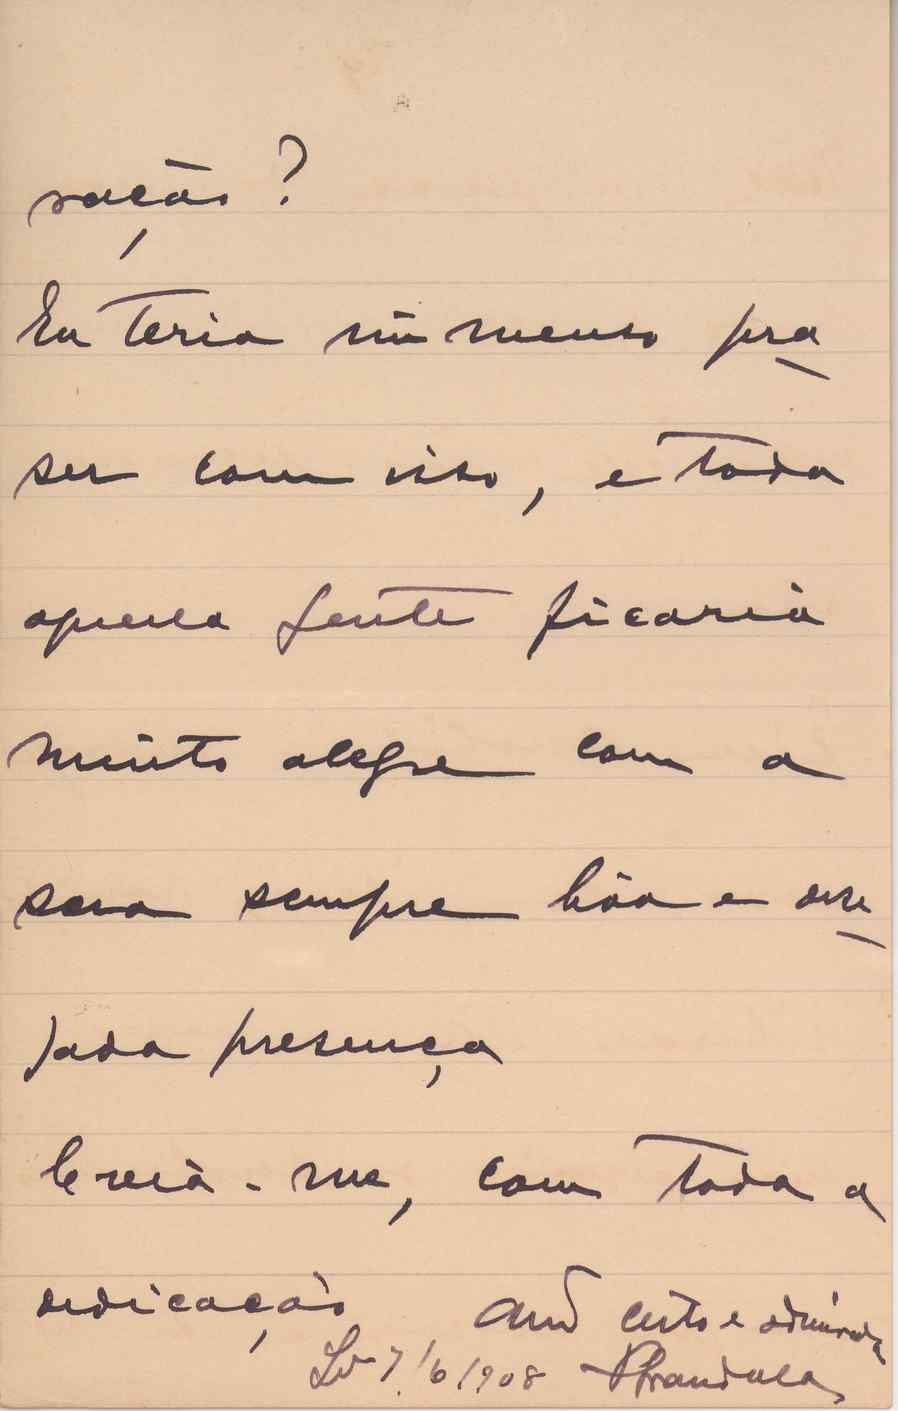 ração?
Eu teria immenso pra
ser com isso, e toda
aquela gente ficaria
muito alegre com a
sua sempre bôa e dese
jada presença
Creia-me, com toda a
dedicação Amº certo e admirador
7/6/908